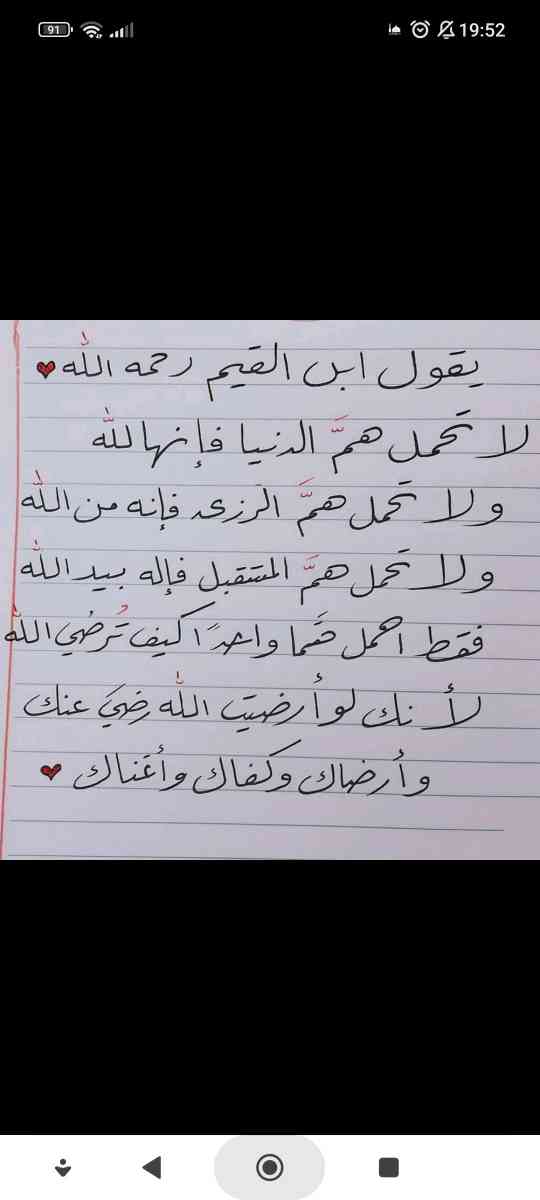 91 19:52
يقول ابن القيم رحمه الله
لا تحمل همَّ الدنيا فإنها لله
ولا تحمل همَّ الرزق فإنه من الله
ولا تحمل همَّ المستقبل فإنه بيد الله
فقط احمل همًّا واحدًا كيف تُرضي الله
لأنك لو أرضيت الله رضيَ عنك
وأرضاك وكفاك وأغناك